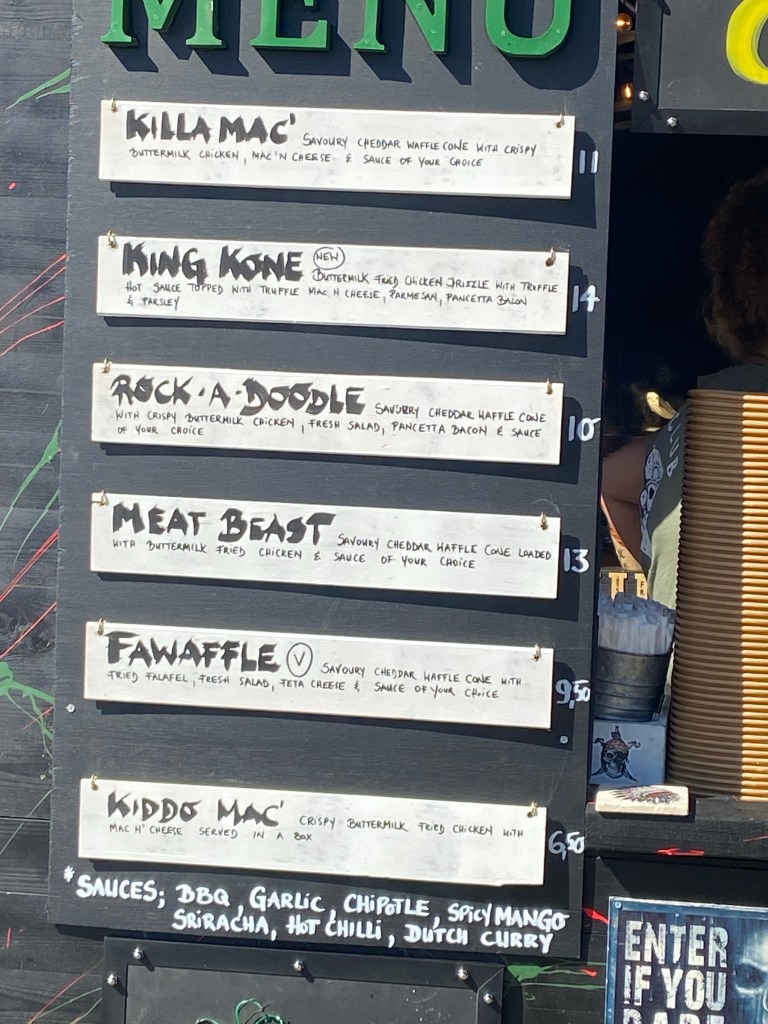 MENU
KILLA MAC' SAVOURY CHEDDAR WAFFLE CONE WITH CRISPY
BUTTERMILK CHICKEN, MAC'N CHEESE & SAUCE OF YOUR CHOICE
11
KING KONE NEW BUTTERMILK FRIED CHICKEN DRIZZLE WITH TRUFFLE
HOT SAUCE TOPPED WITH TRUFFLE MAC N CHEESE, PARMESAN, PANCETTA BACON
& PARSLEY
14
ROCK·A·DOODLE SAVOURY CHEDDAR WAFFLE CONE
WITH CRISPY BUTTERMILK CHICKEN, FRESH SALAD, PANCETTA BACON & SAUCE
OF YOUR CHOICE
10
MEAT BEAST SAVOURY CHEDDAR WAFFLE CONE LOADED
WITH BUTTERMILK FRIED CHICKEN & SAUCE OF YOUR CHOICE
13
FAWAFFLE V SAVOURY CHEDDAR WAFFLE CONE WITH
FRIED FALAFEL, FRESH SALAD, FETA CHEESE & SAUCE OF YOUR CHOICE
9,50
KIDDO MAC' CRISPY BUTTERMILK FRIED CHICKEN WITH
MAC N' CHEESE SERVED IN A BOX
6,50
*SAUCES; BBQ, GARLIC, CHIPOTLE, SPICY MANGO
SRIRACHA, HOT CHILLI, DUTCH CURRY
ENTER
IF YOU
DARE